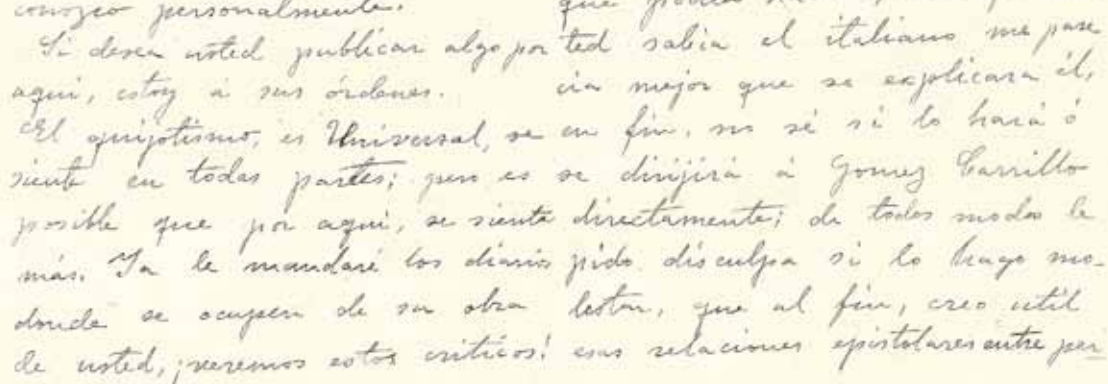 conozco personalmente.
Si desea usted publicar algo por
aqui, estoy á sus órdenes.
El quijotismo, es Universal, se
siente en todas partes; pero es
posible que por aqui, se siente
más. Ya le mandaré los diarios
donde se ocupen de su obra
de usted, ¡veremos estos criticos!
que
ted sabia el italiano me pare
cia mejor que se explicara él,
en fin, no sé si lo hará ó
se dirijirá á Gomez Carrillo
directamente; de todos modos le
pido disculpa si lo hago mo-
lestar, que al fin, creo util
esas relaciones epistolares entre per